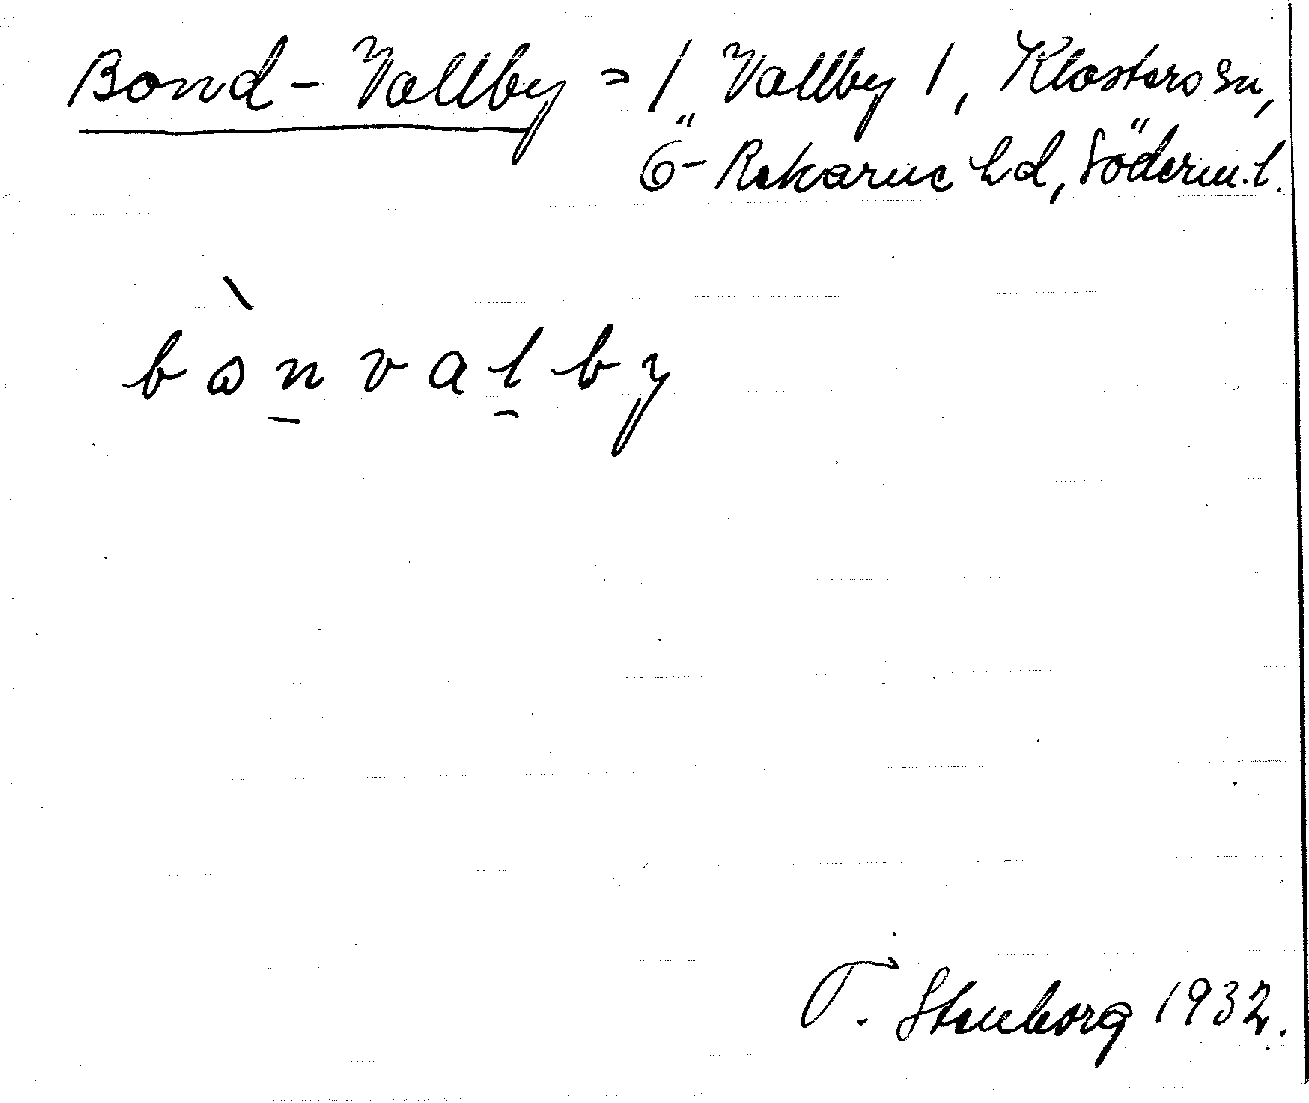 Bond-Vallby = / Vallby 1, Klosters sn,
Ö-Rekarne hd, Söderm.l.
bὼn̲val̲by
T. Stenborg 1932.